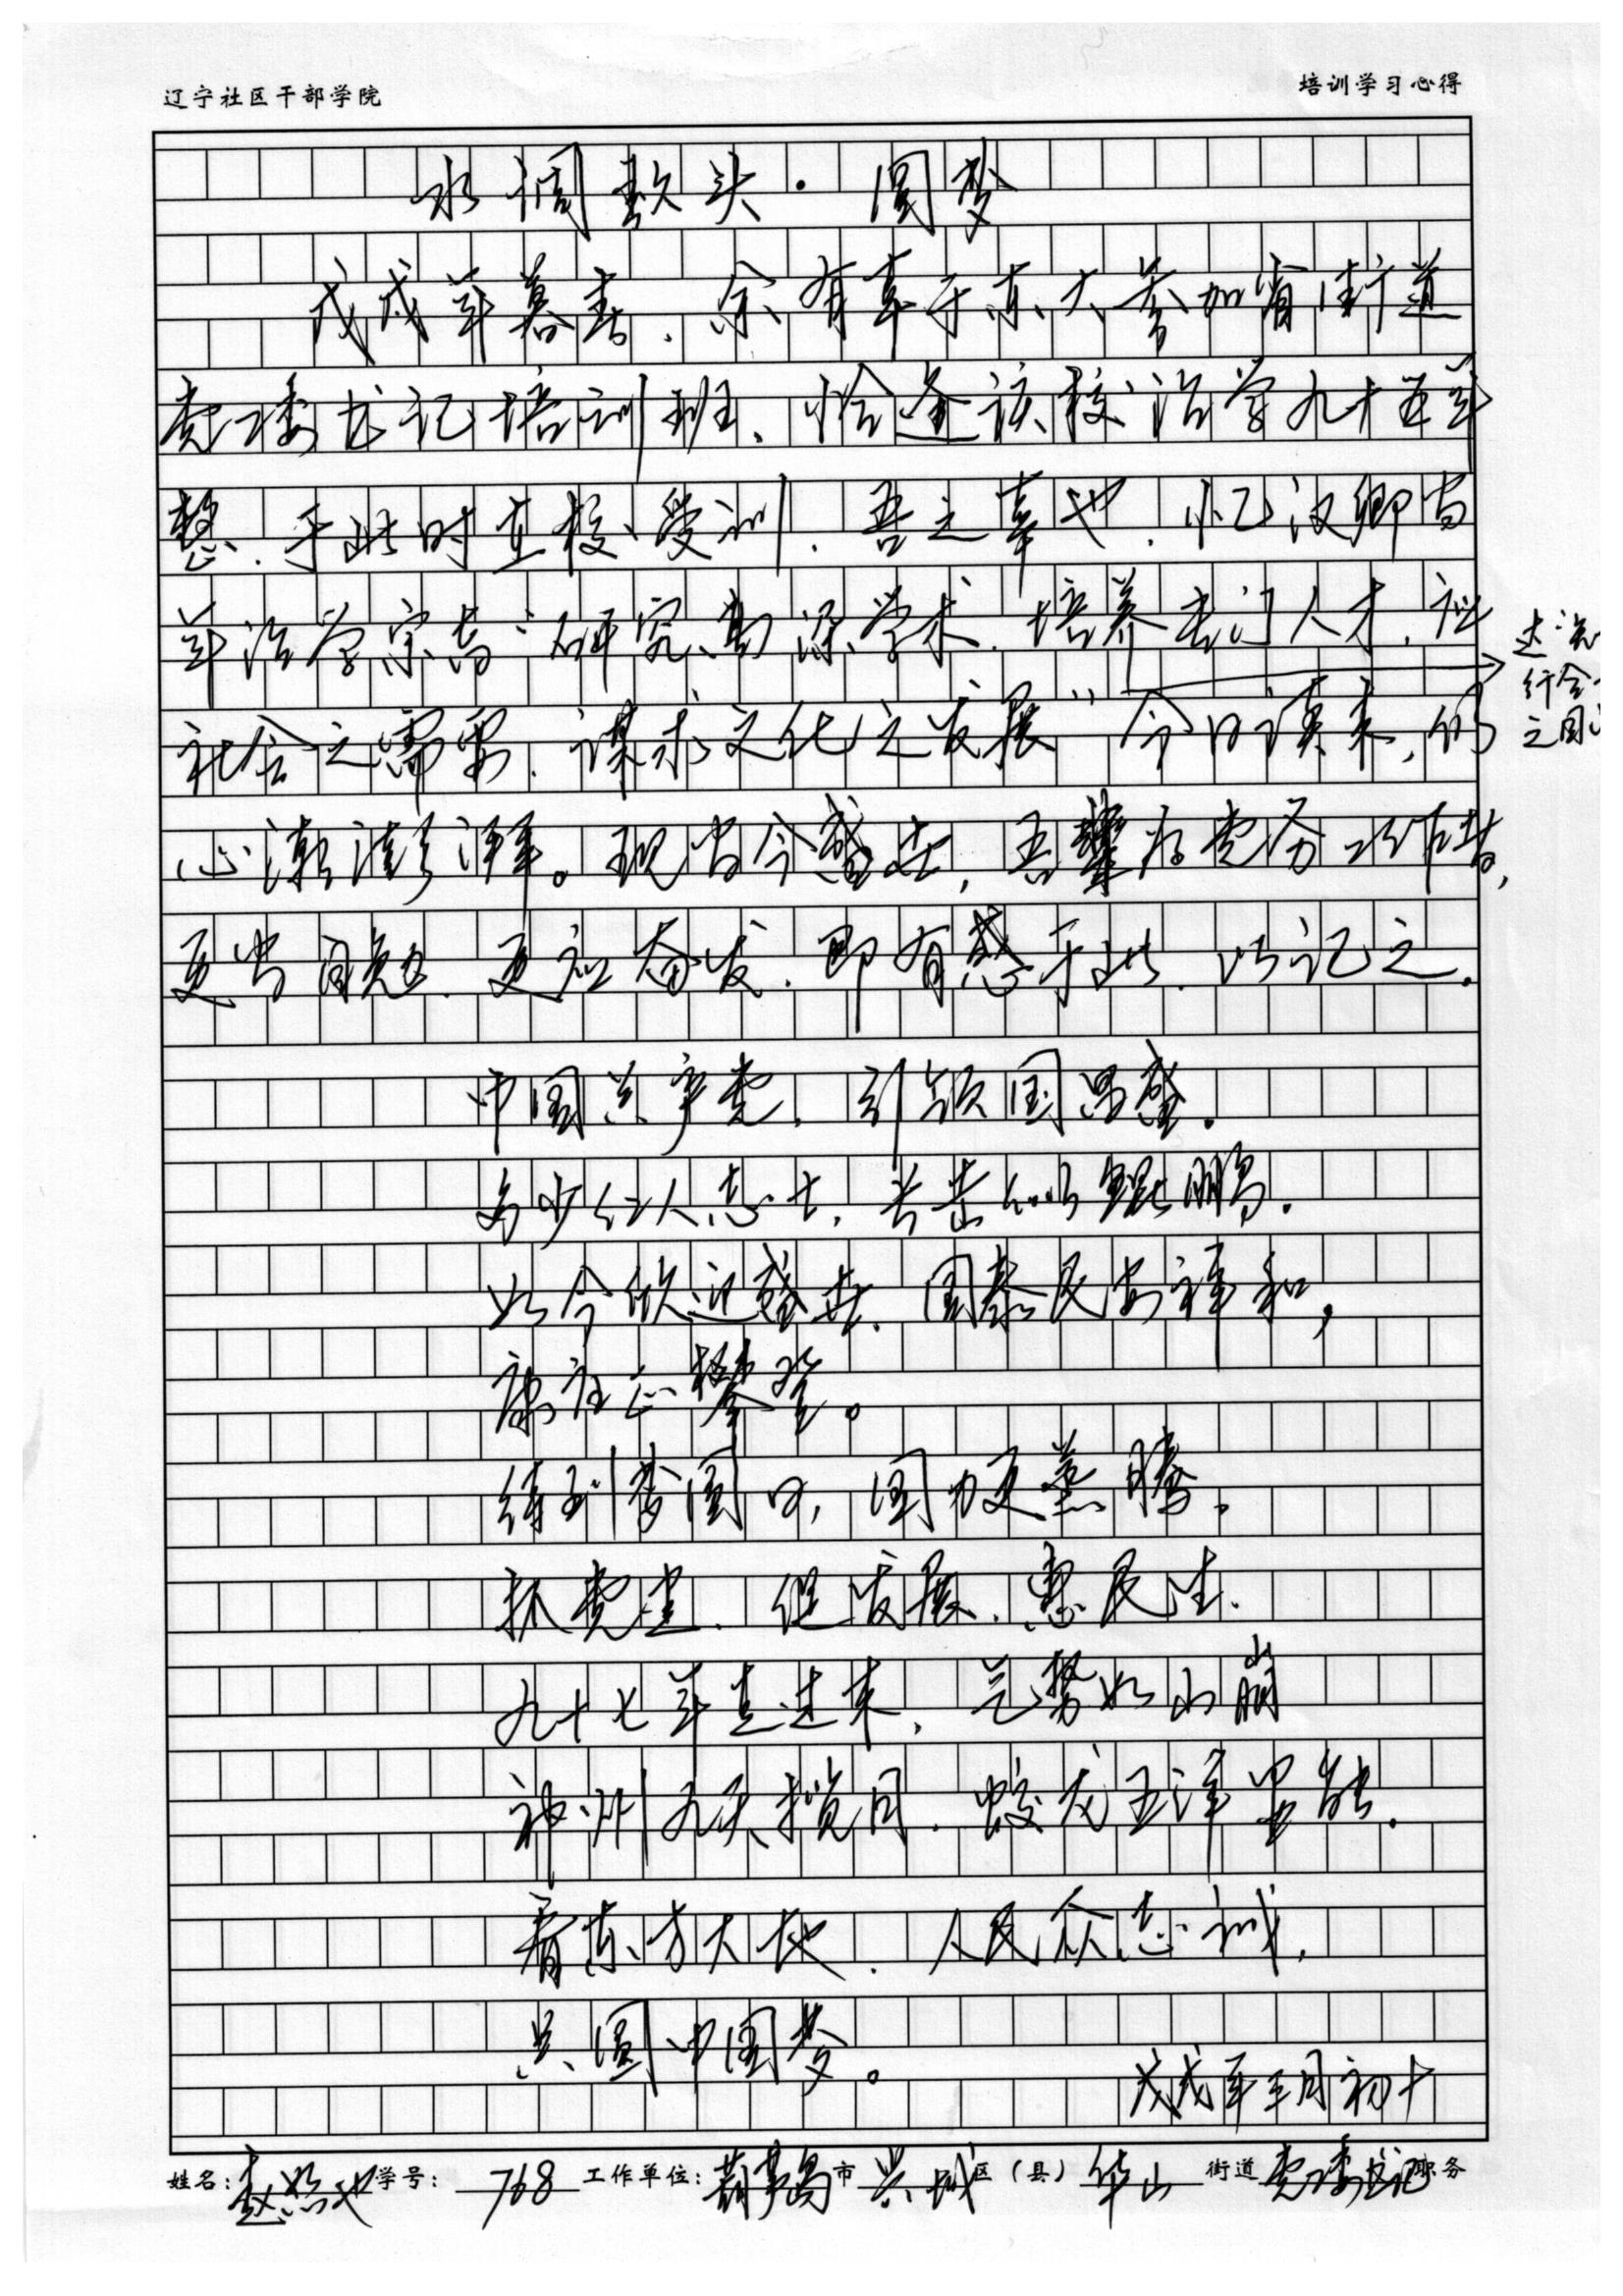 辽宁社区干部学院
培训学习心得
水调歌头·圆梦
戊戌年暮春,余有幸于东大参加省街道
党委书记培训班,恰逢该校治学九十五年
整,于此时在校受训,吾之幸也,忆汉卿当
年治学宗旨“研究高深学术,培养专门人才,
社会之需要,谋求文化之发展”今日读来,仍
达
行合
之目
心潮澎湃。现当今盛世,吾辈为党务工作者,
更当自勉,更应奋发,即有感于此,以记之.
中国共产党,引领国昌盛。
多少仁人志士,似鲲鹏.
如今欣迎盛世,国泰民安祥和,
康庄正攀登。
待到梦圆日,国力更蒸腾.
抓党建,促发展,惠民生.
九十七年走过来,气势如山崩
神州九天揽月,蛟龙五洋显能.
看东方大地,人民众志诚,
共圆中国梦。
戊戌年三月初十
姓名:赵 学号:768 工作单位:葫芦岛市兴城区(县)华山街道党委书记职务